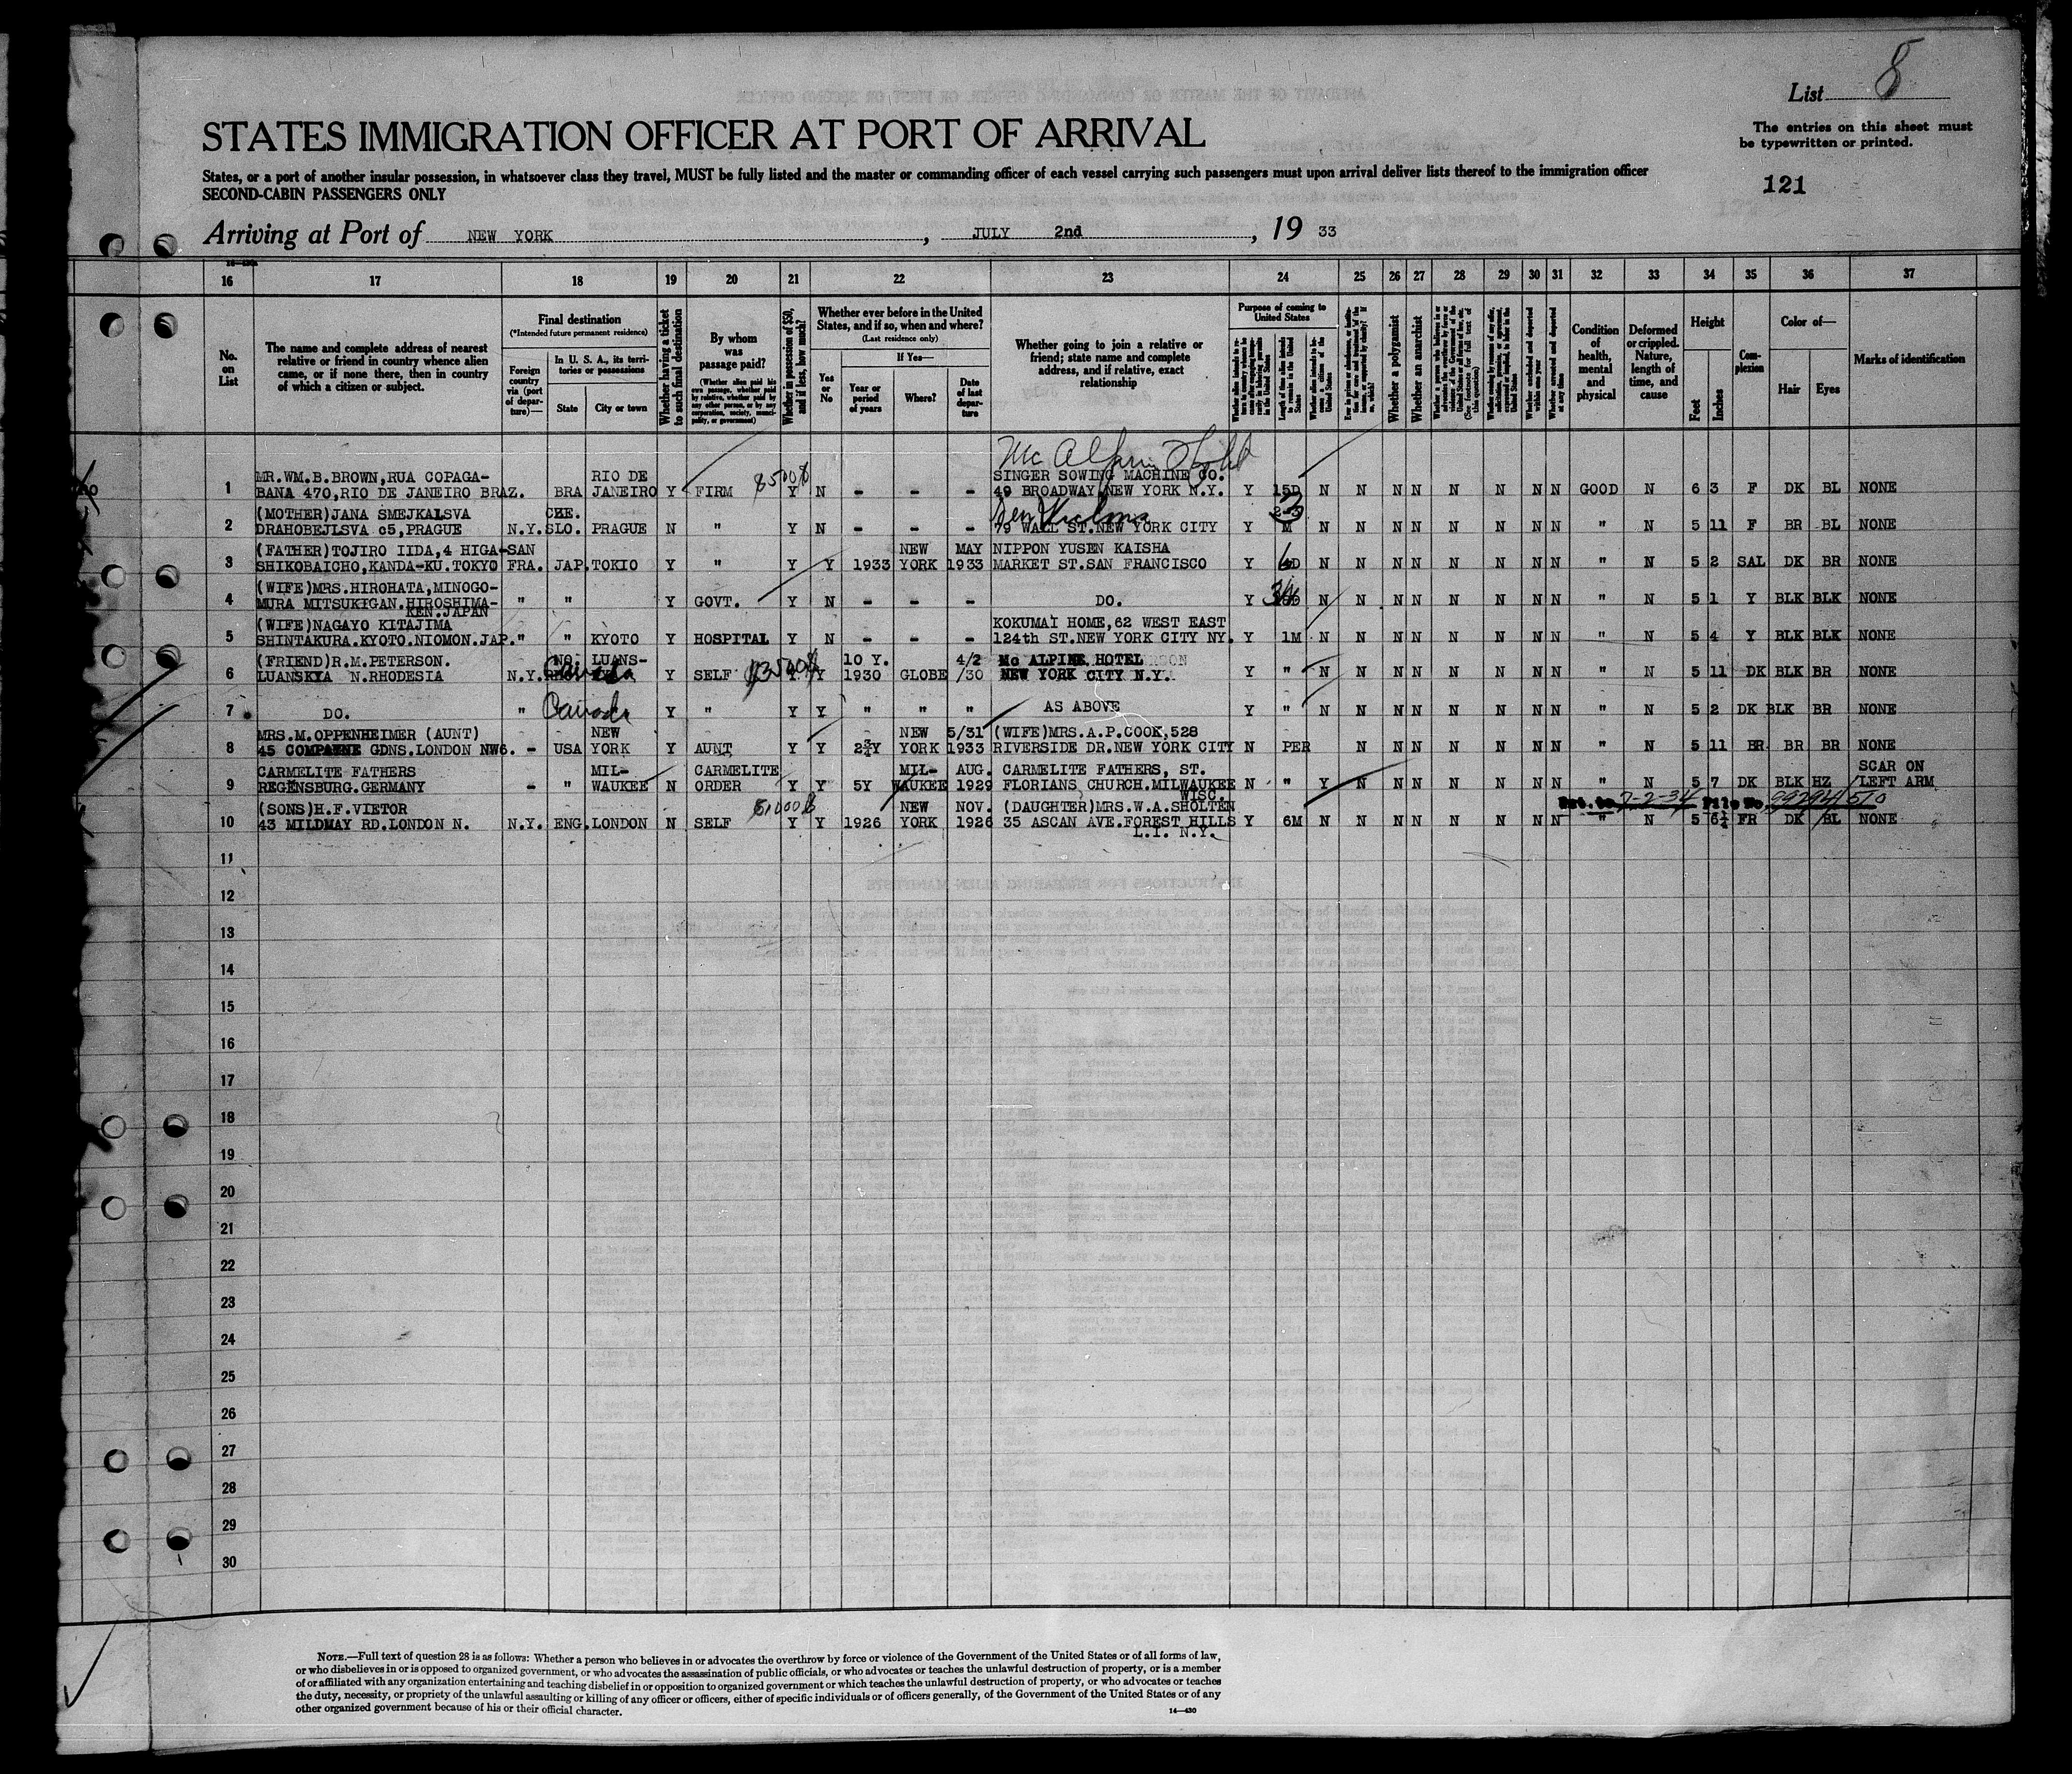 List 8
STATES IMMIGRATION OFFICER AT PORT OF ARRIVAL
The entries on this sheet must
be typewritten or printed.
States, or a port of another insular possession, in whatsoever class they travel, MUST be fully listed and the master or commanding officer of each vessel carrying such passengers must upon arrival deliver lists thereof to the immigration officer
SECOND-CABIN PASSENGERS ONLY
121
Arriving at Port of NEW YORK, JULY 2nd, 19 33
16 17 18 19 20 21 22 23 24 25 26 27 28 29 30 31 32 33 34 35 36 37
No.
on
List
The name and complete address of nearest
relative or friend in country whence alien
came, or if none there, then in country
of which a citizen or subject.
Final destination
(*Intended future permanent residence)
Foreign
country
via (port
of depar-
ture)—
In U. S. A., its terri-
tories or possessions
State
City or town
Whether having a ticket
to such final destination
By whom
was
passage paid?
(Whether alien paid his
own passage, whether paid
by relative, whether paid by
any other person, or by any
corporation, society, munici-
pality, or government)
Whether in possession of $50,
and if less, how much?
Whether ever before in the United
States, and if so, when and where?
(Last residence only)
Yes
or
No
If Yes—
Year or
period
of years
Where?
Date
of last
depar-
ture
Whether going to join a relative or
friend; state name and complete
address, and if relative, exact
relationship
Purpose of coming to
United States
Whether a polygamist
Whether an anarchist
Condition
of
health,
mental
and
physical
Deformed
or crippled.
Nature,
length of
time, and
cause
Height
Feet
Inches
Com-
plexion
Color of—
Hair
Eyes
Marks of identification
Mc Alpin Hotel
MR.WM.B.BROWN,RUA COPAGA- RIO DE SINGER SOWING MACHINE CO.
1 BANA 470,RIO DE JANEIRO BRAZ. BRA JANEIRO Y FIRM Y N - - - 49 BROADWAY NEW YORK N.Y. Y 15D N N N N N N N N GOOD N 6 3 F DK BL NONE
(MOTHER)JANA SMEJKALSVA CZE.
2 DRAHOBEJLSVA 65,PRAGUE N.Y. SLO. PRAGUE N " Y N - - - 75 WALL ST.NEW YORK CITY Y M N N N N N N N N " N 5 11 F BR BL NONE
(FATHER)TOJIRO IIDA,4 HIGA- SAN NEW MAY NIPPON YUSEN KAISHA
3 SHIKOBAICHO,KANDA-KU.TOKYO FRA. JAP. TOKIO Y " Y Y 1933 YORK 1933 MARKET ST.SAN FRANCISCO Y 6D N N N N N N N N " N 5 2 SAL DK BR NONE
(WIFE)MRS.HIROHATA,MINOGO-
4 MURA MITSUKIGAN.HIROSHIMA- " " Y GOVT. Y N - - - DO. Y N N N N N N N N " N 5 1 Y BLK BLK NONE
KEN.JAPAN
(WIFE)NAGAYO KITAJIMA KOKUMAI HOME,62 WEST EAST
5 SHINTAKURA.KYOTO.NIOMON.JAP. " " KYOTO Y HOSPITAL Y N - - - 124th ST.NEW YORK CITY NY. Y 1M N N N N N N N N " N 5 4 Y BLK BLK NONE
(FRIEND)R.M.PETERSON. NO. LUANS- 10 Y. 4/2 Mc ALPINE HOTEL
6 LUANSKYA N.RHODESIA N.Y. Canada Y SELF Y Y 1930 GLOBE /30 NEW YORK CITY N.Y. Y " N N N N N N N N " N 5 11 DK BLK BR NONE
7 DO. " Canada Y " Y Y " " " AS ABOVE Y " N N N N N N N N " N 5 2 DK BLK BR NONE
MRS.M.OPPENHEIMER (AUNT) NEW NEW 5/31 (WIFE)MRS.A.P.COOK,528
8 45 COMPAYNE GDNS.LONDON NW6. - USA YORK Y AUNT Y Y 2¾Y YORK 1933 RIVERSIDE DR.NEW YORK CITY N PER N N N N N N N " N 5 11 BR BR BR NONE
CARMELITE FATHERS MIL- CARMELITE MIL- AUG. CARMELITE FATHERS, ST. SCAR ON
9 REGENSBURG.GERMANY - " WAUKEE N ORDER Y Y 5Y WAUKEE 1929 FLORIANS CHURCH.MILWAUKEE N " Y N N N N N N N " N 5 7 DK BLK HZ LEFT ARM
WISC.
Ext. to 7-2-34 File No. 99294/510
(SONS)H.F.VIETOR NEW NOV. (DAUGHTER)MRS.W.A.SHOLTEN
10 43 MILDMAY RD.LONDON N. N.Y. ENG. LONDON N SELF Y Y 1926 YORK 1926 35 ASCAN AVE.FOREST HILLS Y 6M N N N N N N N N " N 5 6¼ FR DK BL NONE
L.I. N.Y.
11
12
13
14
15
16
17
18
19
20
21
22
23
24
25
26
27
28
29
30
NOTE.—Full text of question 28 is as follows: Whether a person who believes in or advocates the overthrow by force or violence of the Government of the United States or of all forms of law,
or who disbelieves in or is opposed to organized government, or who advocates the assassination of public officials, or who advocates or teaches the unlawful destruction of property, or is a member
of or affiliated with any organization entertaining and teaching disbelief in or opposition to organized government or which teaches the unlawful destruction of property, or who advocates or teaches
the duty, necessity, or propriety of the unlawful assaulting or killing of any officer or officers, either of specific individuals or of officers generally, of the Government of the United States or of any
other organized government because of his or their official character.
14—430